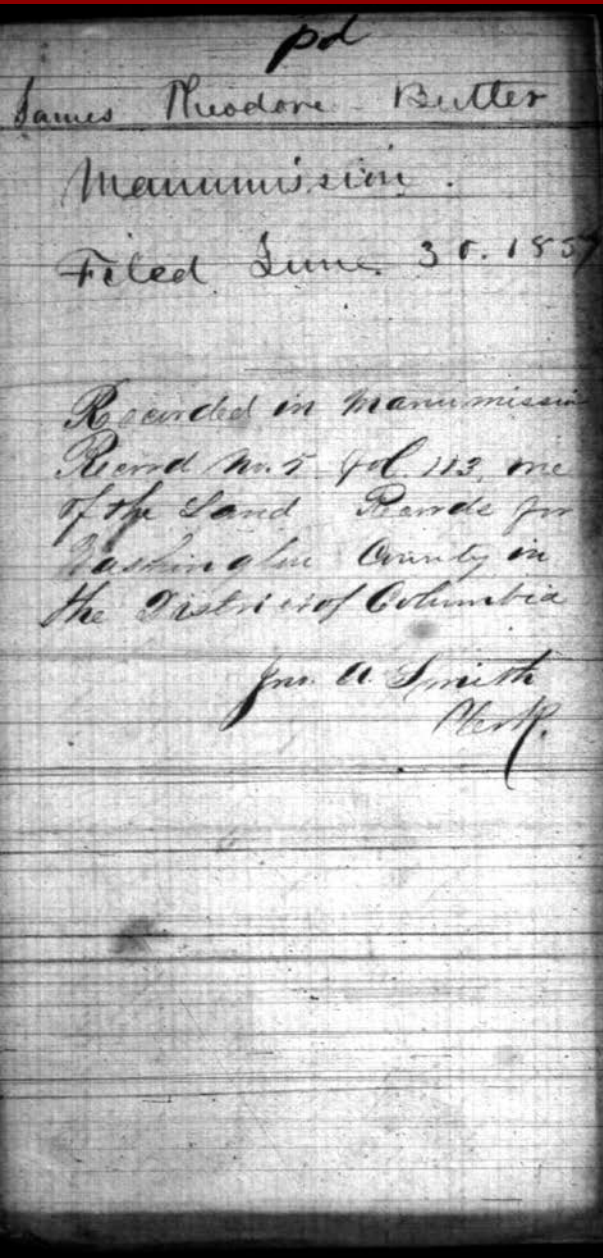 pd
James Theodore Butler
Manumission.
Filed June 30. 1857
Recorded in Manumission
Record No. 5 fol. 113, one
of the Land Records for
Washington County in
the District of Columbia
Jno. A. Smith
Clerk.